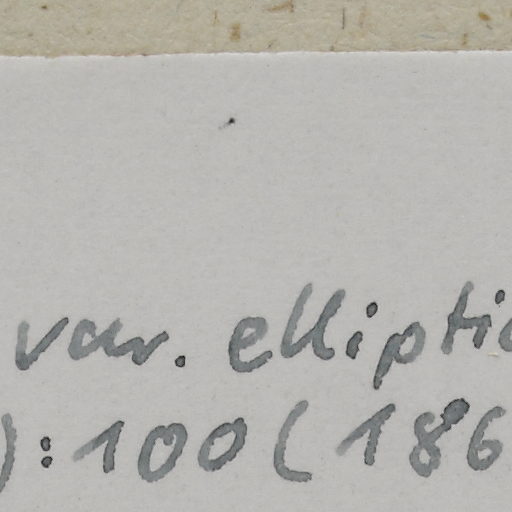 var. ellipti
): 100 (186